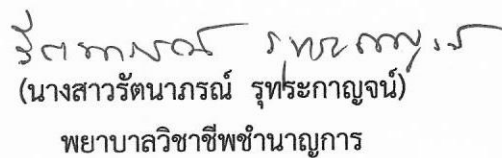 รัตนาภรณ์ รุทระกาญจน์
(นางสาวรัตนาภรณ์ รุทระกาญจน์)
พยาบาลวิชาชีพชำนาญการ